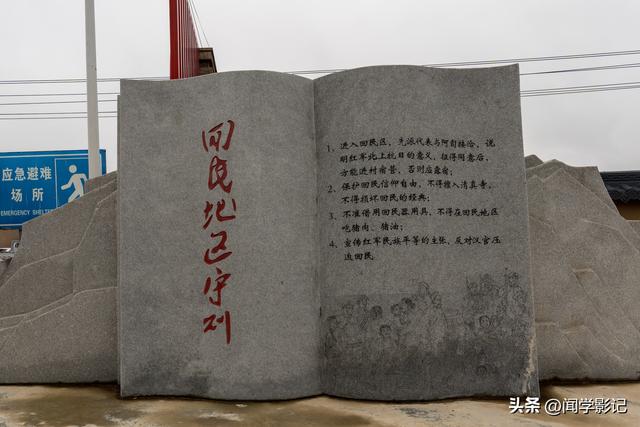 应急避难
场所
EMERGENCY SHELTER
回民地区守则
1、进入回民区，先派代表与阿訇接洽，说
明红军北上抗日的意义，征得同意后，
方能进村宿营，否则应露宿；
2、保护回民信仰自由，不得擅入清真寺，
不得损坏回民的经典；
3、不准借用回民器用具，不得在回民地区
吃猪肉、猪油；
4、宣传红军民族平等的主张，反对汉官压
迫回民。
头条 @闻学影记